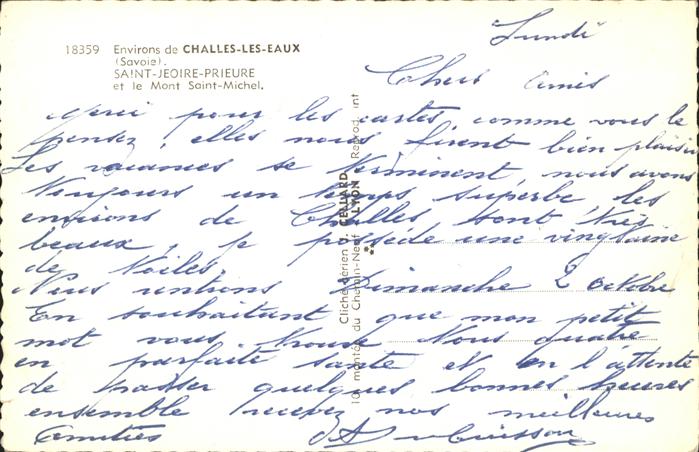 Lundi
18359 Environs de CHALLES-LES-EAUX
(Savoie).
SAINT-JEOIRE-PRIEURE
et le Mont Saint-Michel.
Chers amis
Merci pour les cartes comme vous le
pensez, elles nous firent bien plaisir
Les vacances se terminent, nous avons
toujours un temps superbe, les
environs de Challes sont très
beaux, je possède une vingtaine
de toiles.
Nous rentrons Dimanche 2 octobre
En souhaitant que mon petit
mot vous trouve tous quatre
en parfaite santé et en l'attente
de passer quelques bonnes heures
ensemble recevez nos meilleures
amitiés
Cliché aérien J. CELLARD
10, montée du Chemin-Neuf LYON Reprod. int